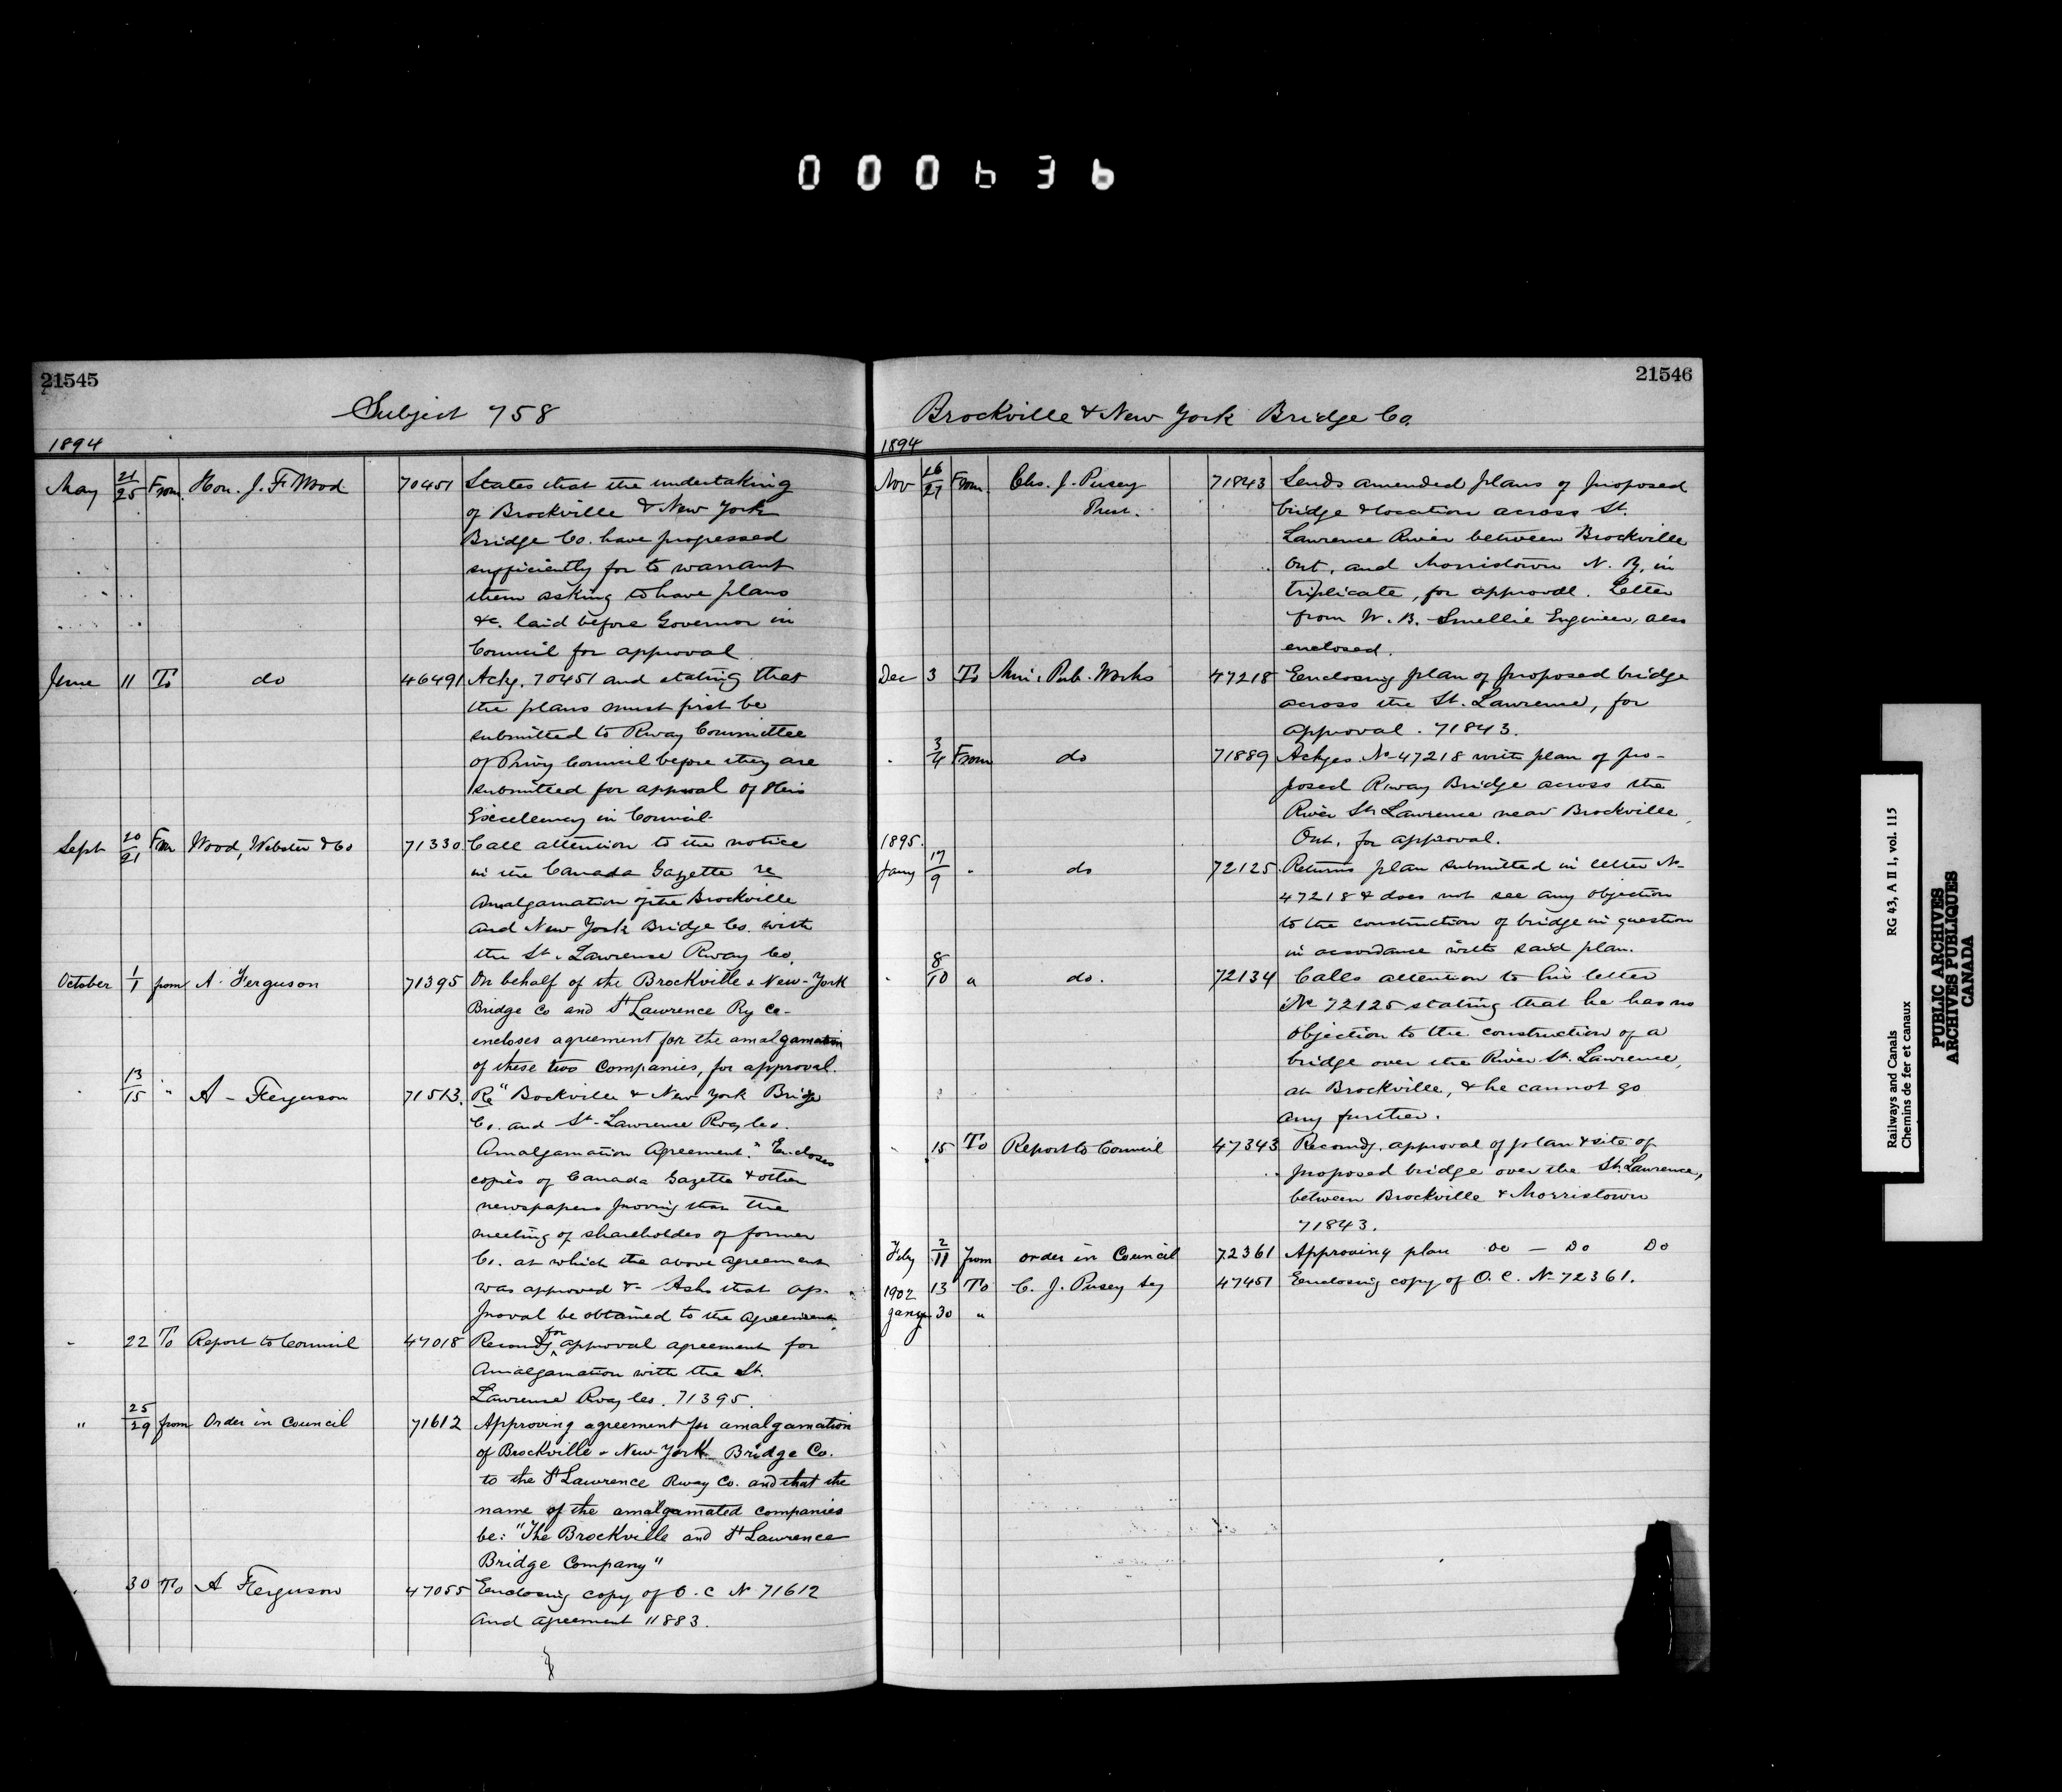 000636
21545
Subject 758
1894
May 21/25 From Hon. J. F. Wood 70451 States that the undertaking
of Brockville & New York
Bridge Co. have progressed
sufficiently for to warrant
them asking to have plans
&c. laid before Governor in
Council for approval
June 11 To do 46491 Ackg. 70451 and stating that
the plans must first be
submitted to Rway Committee
of Privy Council before they are
submitted for approval of His
Excellency in Council.
Sept 20/21 From Wood, Webster & Co 71330 Call attention to the notice
in the Canada Gazette re
Amalgamation of the Brockville
and New York Bridge Co. with
the St. Lawrence Rway Co.
October 1/1 from A. Ferguson 71395 On behalf of the Brockville & New-York
Bridge Co and St Lawrence Ry Co.
encloses agreement for the amalgamation
of these two Companies, for approval.
" 13/15 " A - Ferguson 71513. Re "Bockville & New York Bridge
Co. and St. Lawrence Rway Co.
Amalgamation Agreement." Encloses
copies of Canada Gazette & other
newspapers proving that the
meeting of shareholders of former
Co. at which the above agreement
was approved & Asks that ap-
proval be obtained to the agreement.
" 22 To Report to Council 47018 Recomdg for approval agreement for
Amalgamation with the St.
Lawrence Rway Co. 71395.
" 25/29 from Order in Council 71612 Approving agreement for amalgamation
of Brockville & New York Bridge Co.
to the St Lawrence Rway Co. and that the
name of the amalgamated companies
be: "The Brockville and St Lawrence
Bridge Company"
30 To A Ferguson 47055 Enclosing copy of O. C No 71612
and agreement 11883.
21546
Brockville & New York Bridge Co.
1894
Nov 26/27 From Chs. J. Pusey 71843 Sends amended plans of proposed
Prest. bridge & location across St.
Lawrence River between Brockville
Ont. and Morristown N. Y. in
triplicate, for approval. Letter
from W. B. Smellie Engineer, also
enclosed.
Dec 3 To Min. Pub. Works 47218 Enclosing plan of proposed bridge
across the St. Lawrence, for
approval. 71843.
" 3/4 From do 71889 Ackges No 47218 with plan of pro-
posed Rway Bridge across the
River St. Lawrence near Brockville,
Ont. for approval.
1895.
Jany 17/9 " do 72125 Returns plan submitted in letter No
47218 & does not see any objection
to the construction of bridge in question
in accordance with said plan.
" 8/10 " do. 72134 Calls attention to his letter
No 72125 stating that he has no
objection to the construction of a
bridge over the River St. Lawrence,
at Brockville, & he cannot go
any further.
" 15 To Report to Council 47343 Recomdg. approval of plan & site of
proposed bridge over the St. Lawrence,
between Brockville & Morristown
71843.
Feby 2/11 from order in Council 72361 Approving plan Do — Do Do
13 To C. J. Pusey 47451 Enclosing copy of O. C. No 72361.
1902
Jany 30 "
Railways and Canals RG 43, A II 1, vol. 115
Chemins de fer et canaux
PUBLIC ARCHIVES
ARCHIVES PUBLIQUES
CANADA